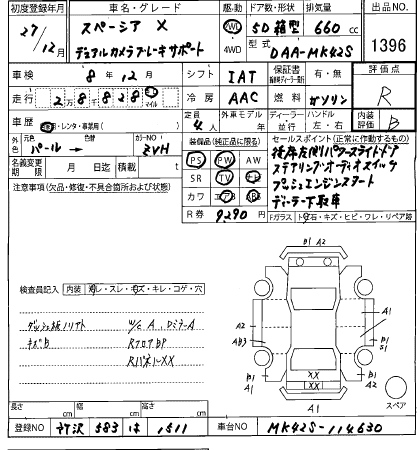 初度登録年月 車名・グレード ドア数・形状 排気量 出品NO
27/12月 スペーシア X 2WD 5D 箱型 660 cc 1396
デュアルカメラブレーキサポート 4WD 型式 DAA-MK42S
車検 8年12月 シフト IAT 保証書 有・無 評価点
走行 2万8千828 マイル 冷房 AAC 燃料 ガソリン R
車歴 レンタ・事業用 定員 4人 外車モデル 年 ディーラー 並行 ハンドル 左・右 内装評価 B
外色 元色 パール → 色替 カラーNO ZVH
装備品(純正品に限る) セールスポイント(正常に作動するもの)
名義変更期限 月 日迄 積載 t
PS PW AW
SR TV ナビ
カワ エアB ABS
後席左側パワースライドドア
ステアリングオーディオスイッチ
プッシュエンジンスタート
ディーラー下取車
注意事項(欠品・修復・不具合箇所および状態)
R券 9290 円
Fガラス トビ石・キズ・ヒビ・ワレ・リペア跡
検査員記入 内装 ヨゴレ・スレ・キズ・キレ・コゲ・穴
ダッシュ板ノリアト W/C A、DミラーA
キズB RフロアBP
RパネルXX
B1 A2
A1
A2
AB3
B1
S1
B1
A1
XX
XX
B1
A2
A1
スペア
長さ cm 幅 cm 高さ cm
登録NO 所沢 583 は 1511 車台NO MK42S-114630